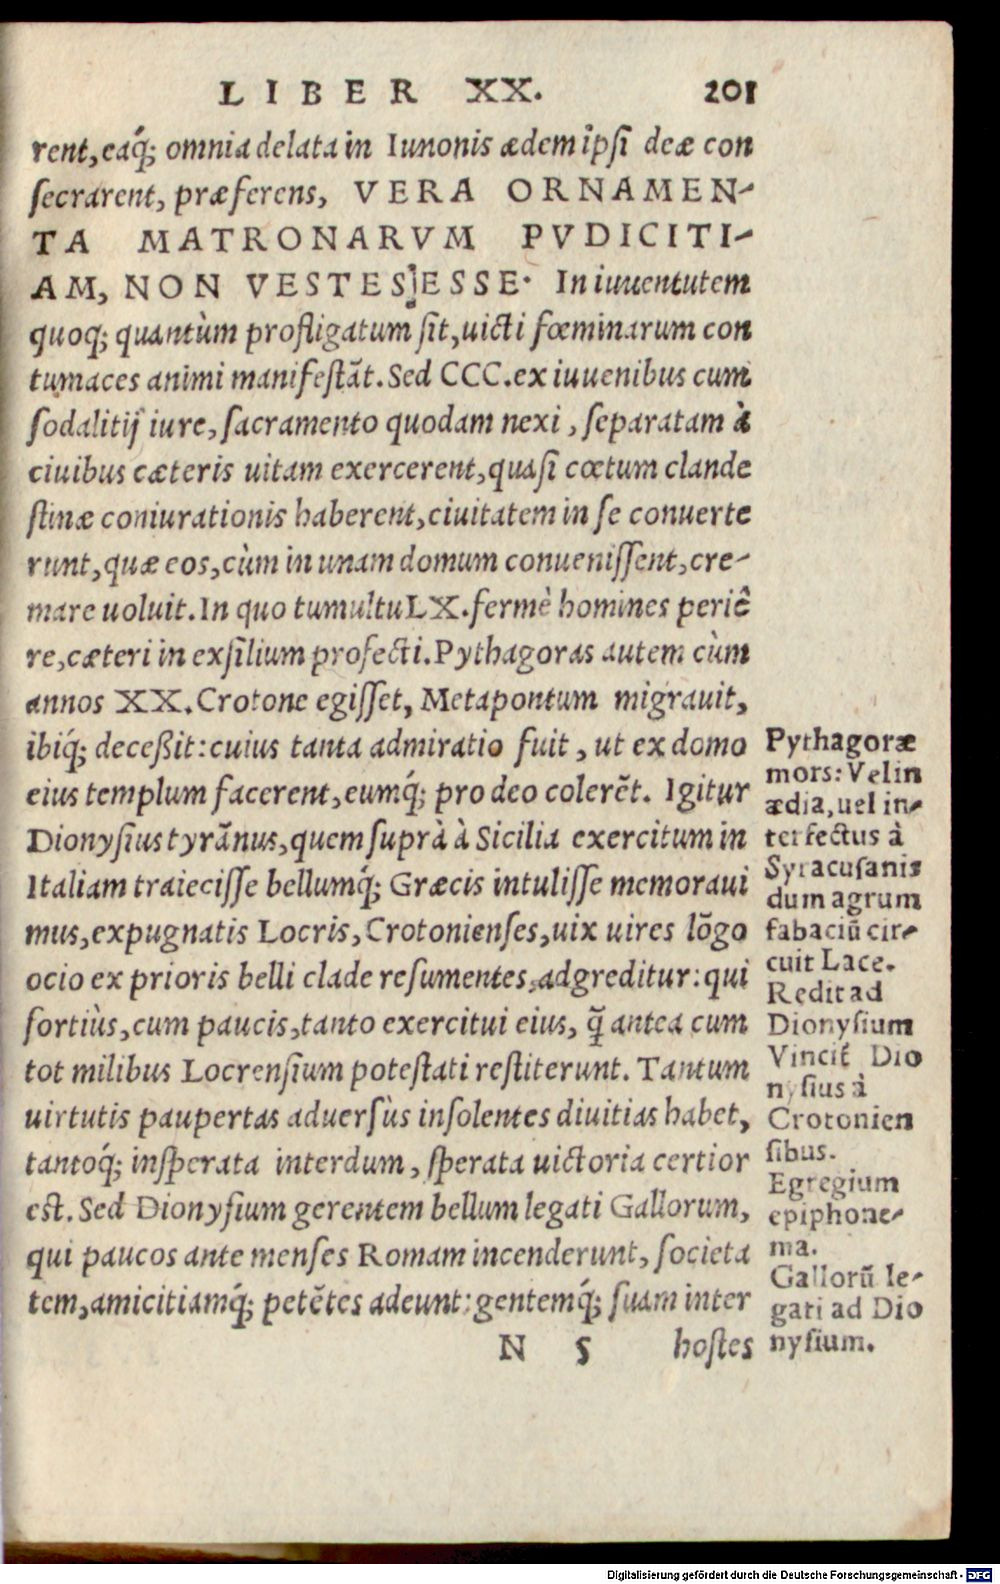 LIBER XX. 201
rent, eaq́; omnia delata in Iunonis ædem ipsi deæ con
secrarent, præferens, VERA ORNAMEN-
TA MATRONARVM PVDICITI-
AM, NON VESTES, ESSE. In iuuentutem
quoq; quantùm profligatum sit, uicti fœminarum con
tumaces animi manifestãt. Sed CCC. ex iuuenibus cum
sodalitij iure, sacramento quodam nexi, separatam à
ciuibus cæteris uitam exercerent, quasi cœtum clande
stinæ coniurationis haberent, ciuitatem in se conuerte
runt, quæ eos, cùm in unam domum conuenissent, cre-
mare uoluit. In quo tumultu LX. fermè homines periê
re, cæteri in exsilium profecti. Pythagoras autem cùm
annos XX. Crotone egisset, Metapontum migrauit,
ibiq́; deceßit: cuius tanta admiratio fuit, ut ex domo
eius templum facerent, eumq́; pro deo colerẽt. Igitur
Dionysius tyrãnus, quem suprà à Sicilia exercitum in
Italiam traiecisse bellumq́; Græcis intulisse memoraui
mus, expugnatis Locris, Crotonienses, uix uires lõgo
ocio ex prioris belli clade resumentes, adgreditur: qui
fortiùs, cum paucis, tanto exercitui eius, q̃ antea cum
tot milibus Locrensium potestati restiterunt. Tantum
uirtutis paupertas aduersùs insolentes diuitias habet,
tantoq́; insperata interdum, sperata uictoria certior
est. Sed Dionysium gerentem bellum legati Gallorum,
qui paucos ante menses Romam incenderunt, societa
tem, amicitiamq́; petẽtes adeunt: gentemq́; suam inter
N 5 hostes
Pythagoræ
mors: Vel in
ædia, uel in-
terfectus à
Syracusanis
dum agrum
fabaciũ cir-
cuit Lace.
Redit ad
Dionysium
Vincit̃ Dio
nysius à
Crotonien
sibus.
Egregium
epiphone-
ma.
Gallorũ le-
gati ad Dio
nysium.
Digitalisierung gefördert durch die Deutsche Forschungsgemeinschaft - DFG